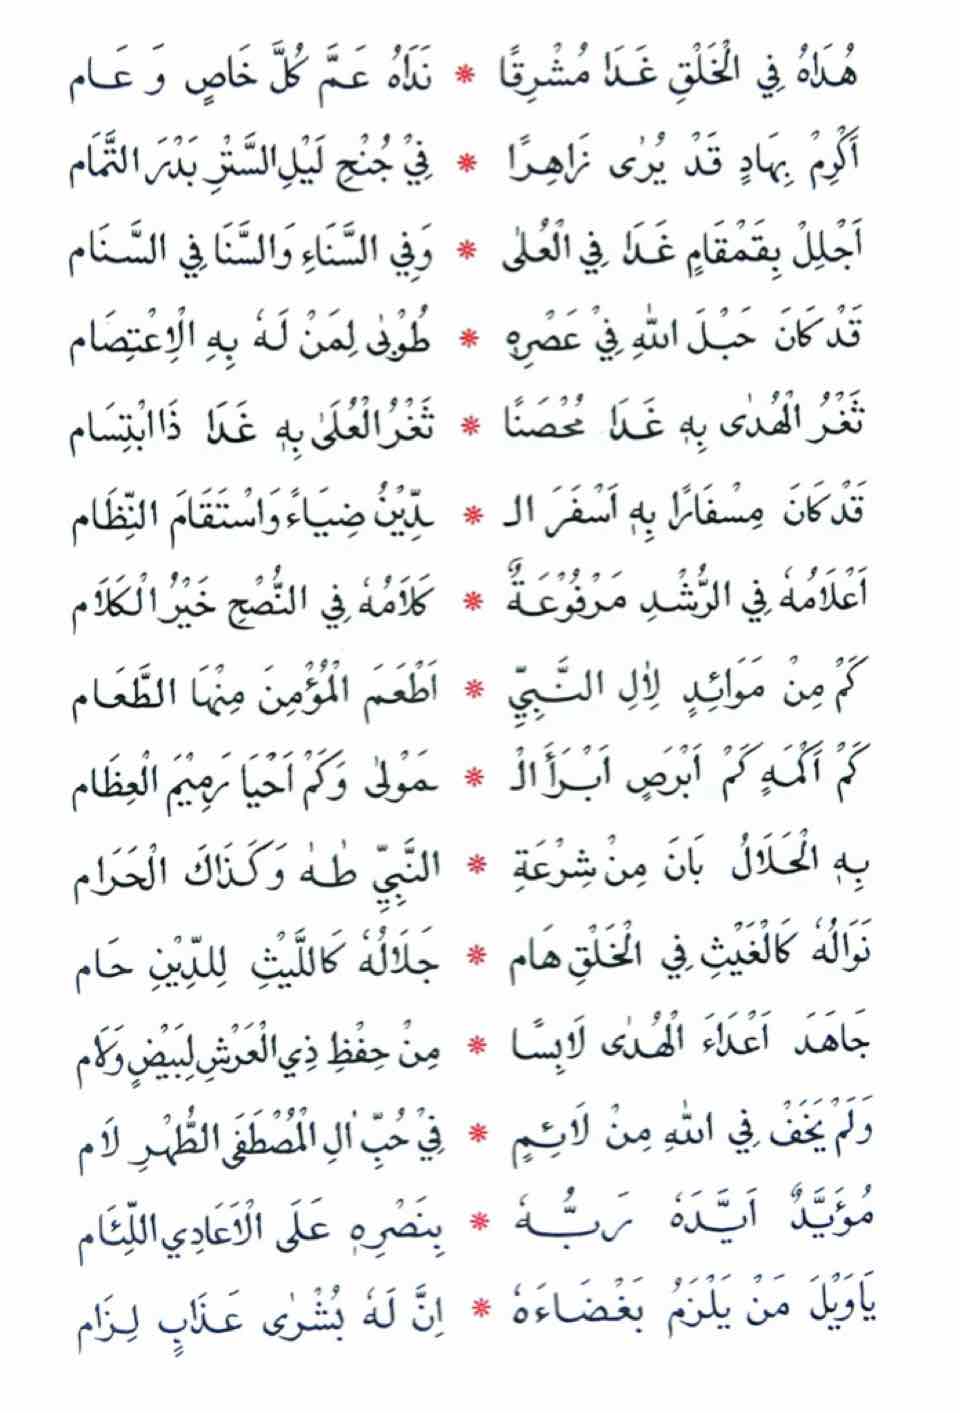 هُدَاهُ فِي الْخَلْقِ غَدَا مُشْرِقًا * نَدَاهُ عَمَّ كُلَّ خَاصٍ وَ عَام
أَكْرِمْ بِهَادٍ قَدْ يُرٰى زَاهِرًا * فِيْ جُنْحِ لَيْلِ السَّتْرِ بَدْرَ التَّمَام
اَجْلِلْ بِقَمْقَامٍ غَدَا فِي الْعُلٰى * وَفِي السَّنَاءِ وَالسَّنَا فِي السَّنَام
قَدْ كَانَ حَبْلَ اللهِ فِيْ عَصْرِهٖ * طُوْبٰى لِمَنْ لَهٗ بِهِ الْاِعْتِصَام
ثَغْرُ الْهُدٰى بِهٖ غَدَا مُحْصَنًا * ثَغْرُ الْعُلَىٰ بِهٖ غَدَا ذَا ابْتِسَام
قَدْ كَانَ مِسْفَارًا بِهٖ اَسْفَرَ الـ * ـدِّيْنُ ضِيَاءً وَاسْتَقَامَ النِّظَام
اَعْلَامُهٗ فِي الرُّشْدِ مَرْفُوْعَةٌ * كَلَامُهٗ فِي النُّصْحِ خَيْرُ الْكَلَام
كَمْ مِنْ مَوَائِدٍ لِاٰلِ النَّبِيِّ * اَطْعَمَ الْمُؤْمِنَ مِنْهَا الطَّعَام
كَمْ أَكْمَهٍ كَمْ اَبْرَصٍ اَبْرَأَ الْـ * ـمَوْلٰى وَكَمْ اَحْيَا رَمِيْمَ الْعِظَام
بِهِ الْحَلَالُ بَانَ مِنْ شِرْعَةِ * النَّبِيِّ طٰهٰ وَكَذَاكَ الْحَرَام
نَوَالُهٗ كَالْغَيْثِ فِي الْخَلْقِ هَام * جَلَالُهٗ كَاللَّيْثِ لِلدِّيْنِ حَام
جَاهَدَ اَعْدَاءَ الْهُدٰى لَابِسًا * مِنْ حِفْظِ ذِي الْعَرْشِ لِبَيْضٍ وَلَام
وَلَمْ يَخَفْ فِي اللهِ مِنْ لَائِمٍ * فِيْ حُبِّ اٰلِ الْمُصْطَفَى الطُّهْرِ لَام
مُؤَيَّدٌ اَيَّدَهٗ رَبُّهٗ * بِنَصْرِهٖ عَلَى الْاَعَادِي اللِّئَام
يَاوَيْلَ مَنْ يَلْزَمُ بَغْضَاءَهٗ * اِنَّ لَهٗ بُشْرٰى عَذَابٍ لِزَام